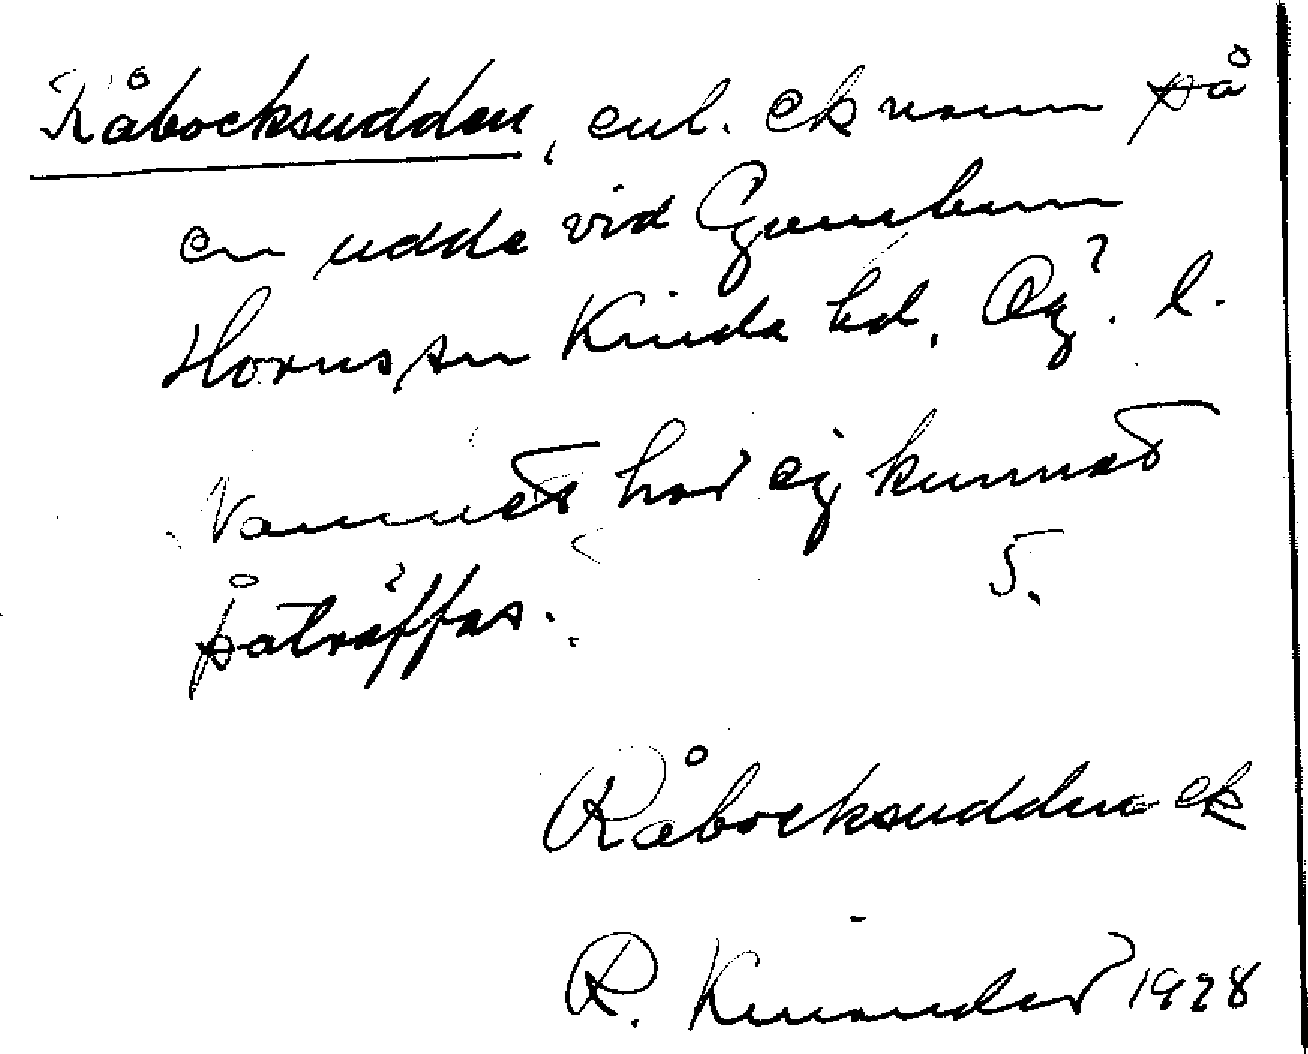 Råbocksudden, enl. ek namn på
en udde vid
Horns sn Kinda hd. Ög. l.
Namnet har ej kunnat
påträffas. S.
Råbocksudden ek
R. Kinander 1928